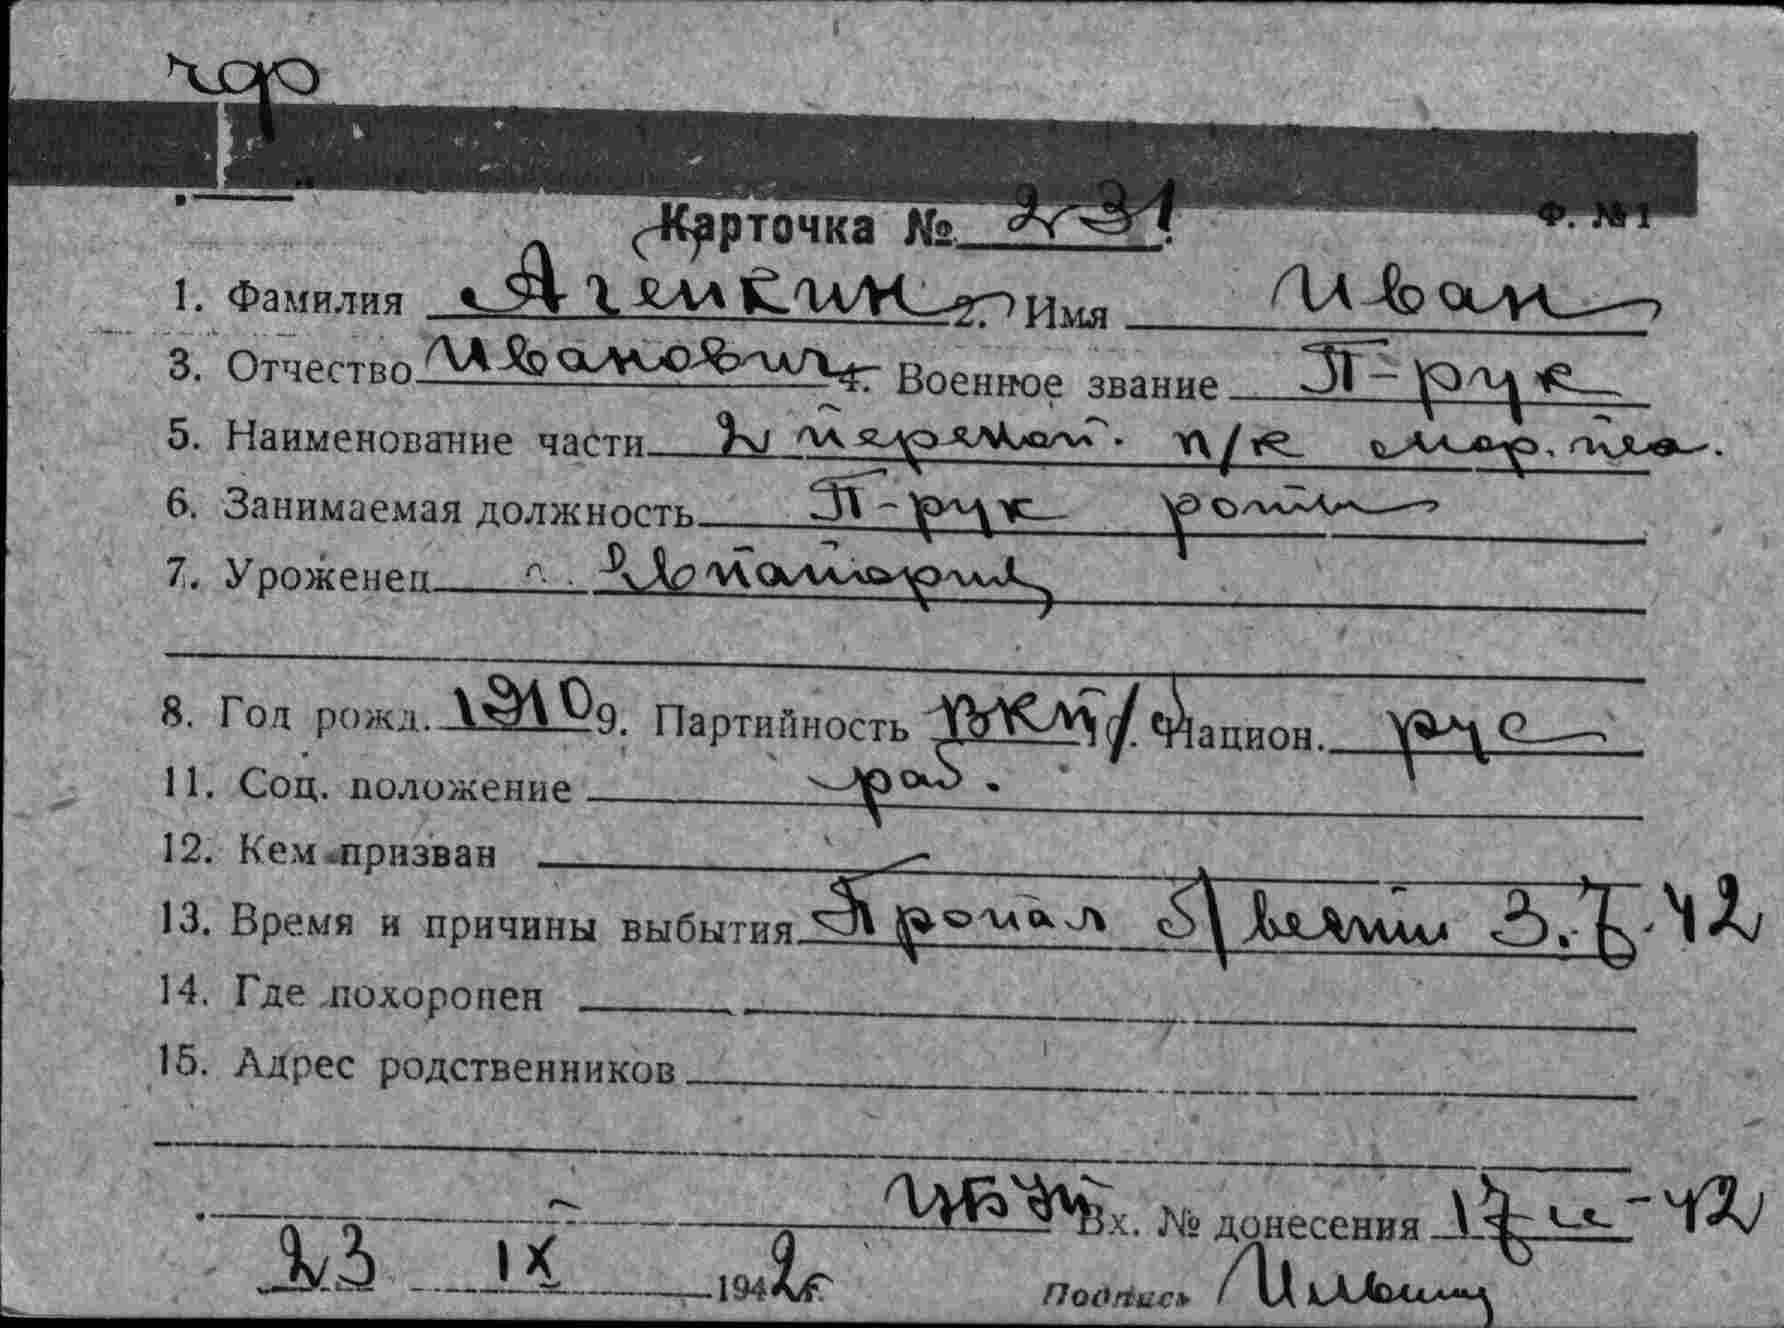 чдр
Карточка № 231.
Ф. №1
1. Фамилия Агейкин 2. Имя Иван
3. Отчество Иванович 4. Военное звание П-рук
5. Наименование части 2 Перекоп. п/к мор. пех.
6. Занимаемая должность П-рук роты
7. Уроженец г. Евпатории
8. Год рожд. 1910 9. Партийность ВКП/б 10. Национ. рус
11. Соц. положение раб.
12. Кем призван
13. Время и причины выбытия Пропал б/вести 3.7.42
14. Где похоронен
15. Адрес родственников
Вх. № донесения 17 -42
23 IX 1942 г.
Подпись